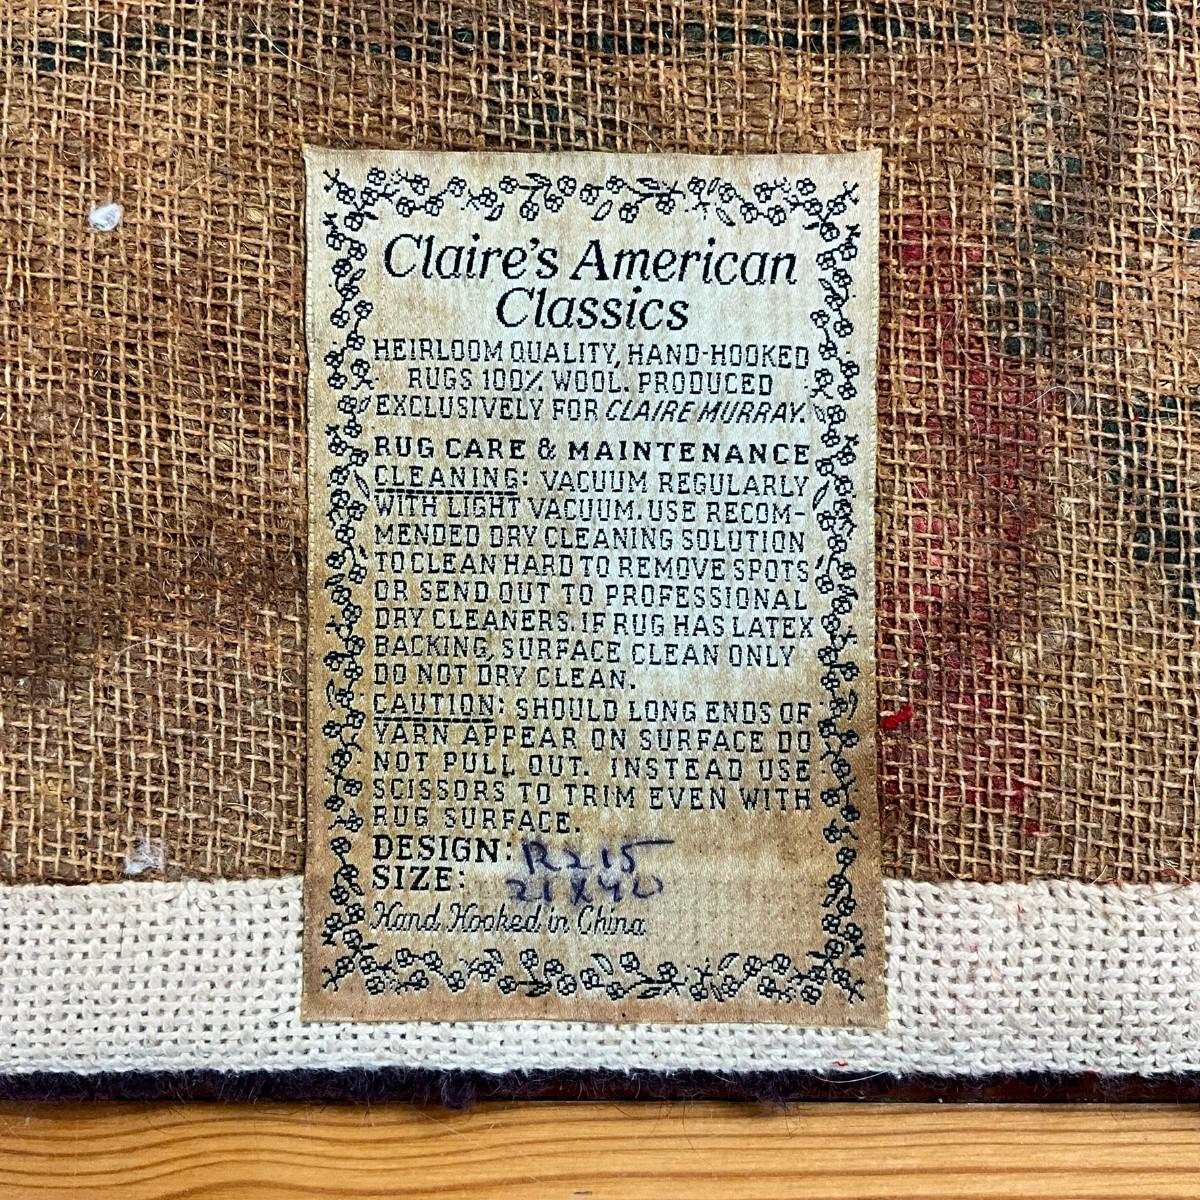 Claire's American
Classics
HEIRLOOM QUALITY, HAND-HOOKED
RUGS 100% WOOL. PRODUCED
EXCLUSIVELY FOR CLAIRE MURRAY.
RUG CARE & MAINTENANCE
CLEANING: VACUUM REGULARLY
WITH LIGHT VACUUM. USE RECOM-
MENDED DRY CLEANING SOLUTION
TO CLEAN HARD TO REMOVE SPOTS
OR SEND OUT TO PROFESSIONAL
DRY CLEANERS. IF RUG HAS LATEX
BACKING, SURFACE CLEAN ONLY
DO NOT DRY CLEAN.
CAUTION: SHOULD LONG ENDS OF
YARN APPEAR ON SURFACE DO
NOT PULL OUT. INSTEAD USE
SCISSORS TO TRIM EVEN WITH
RUG SURFACE.
DESIGN: R215
SIZE: 21X40
Hand Hooked in China